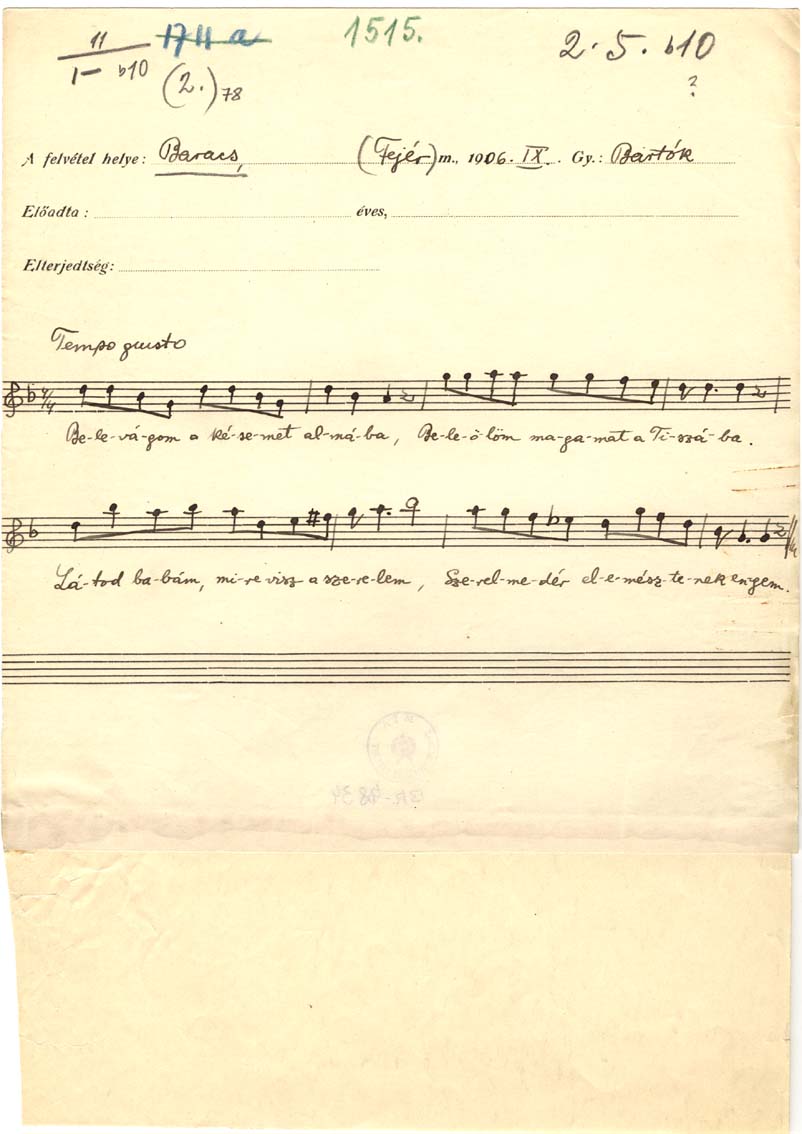 11 1711 a 1515. 2. 5. b10
I- b10 (2.) 78 ?
A felvétel helye: Baracs, (Fejér) m., 1906. IX. Gy.: Bartók
Előadta: éves,
Elterjedtség:
Tempo giusto
Be-le-vá-gom a ké-se-met al-má-ba, Be-le-ö-löm ma-ga-mat a Ti-szá-ba.
Lá-tod ba-bám, mi-re visz a sze-re-lem, Sze-rel-me-dér el-e-mész-te-nek en-gem.